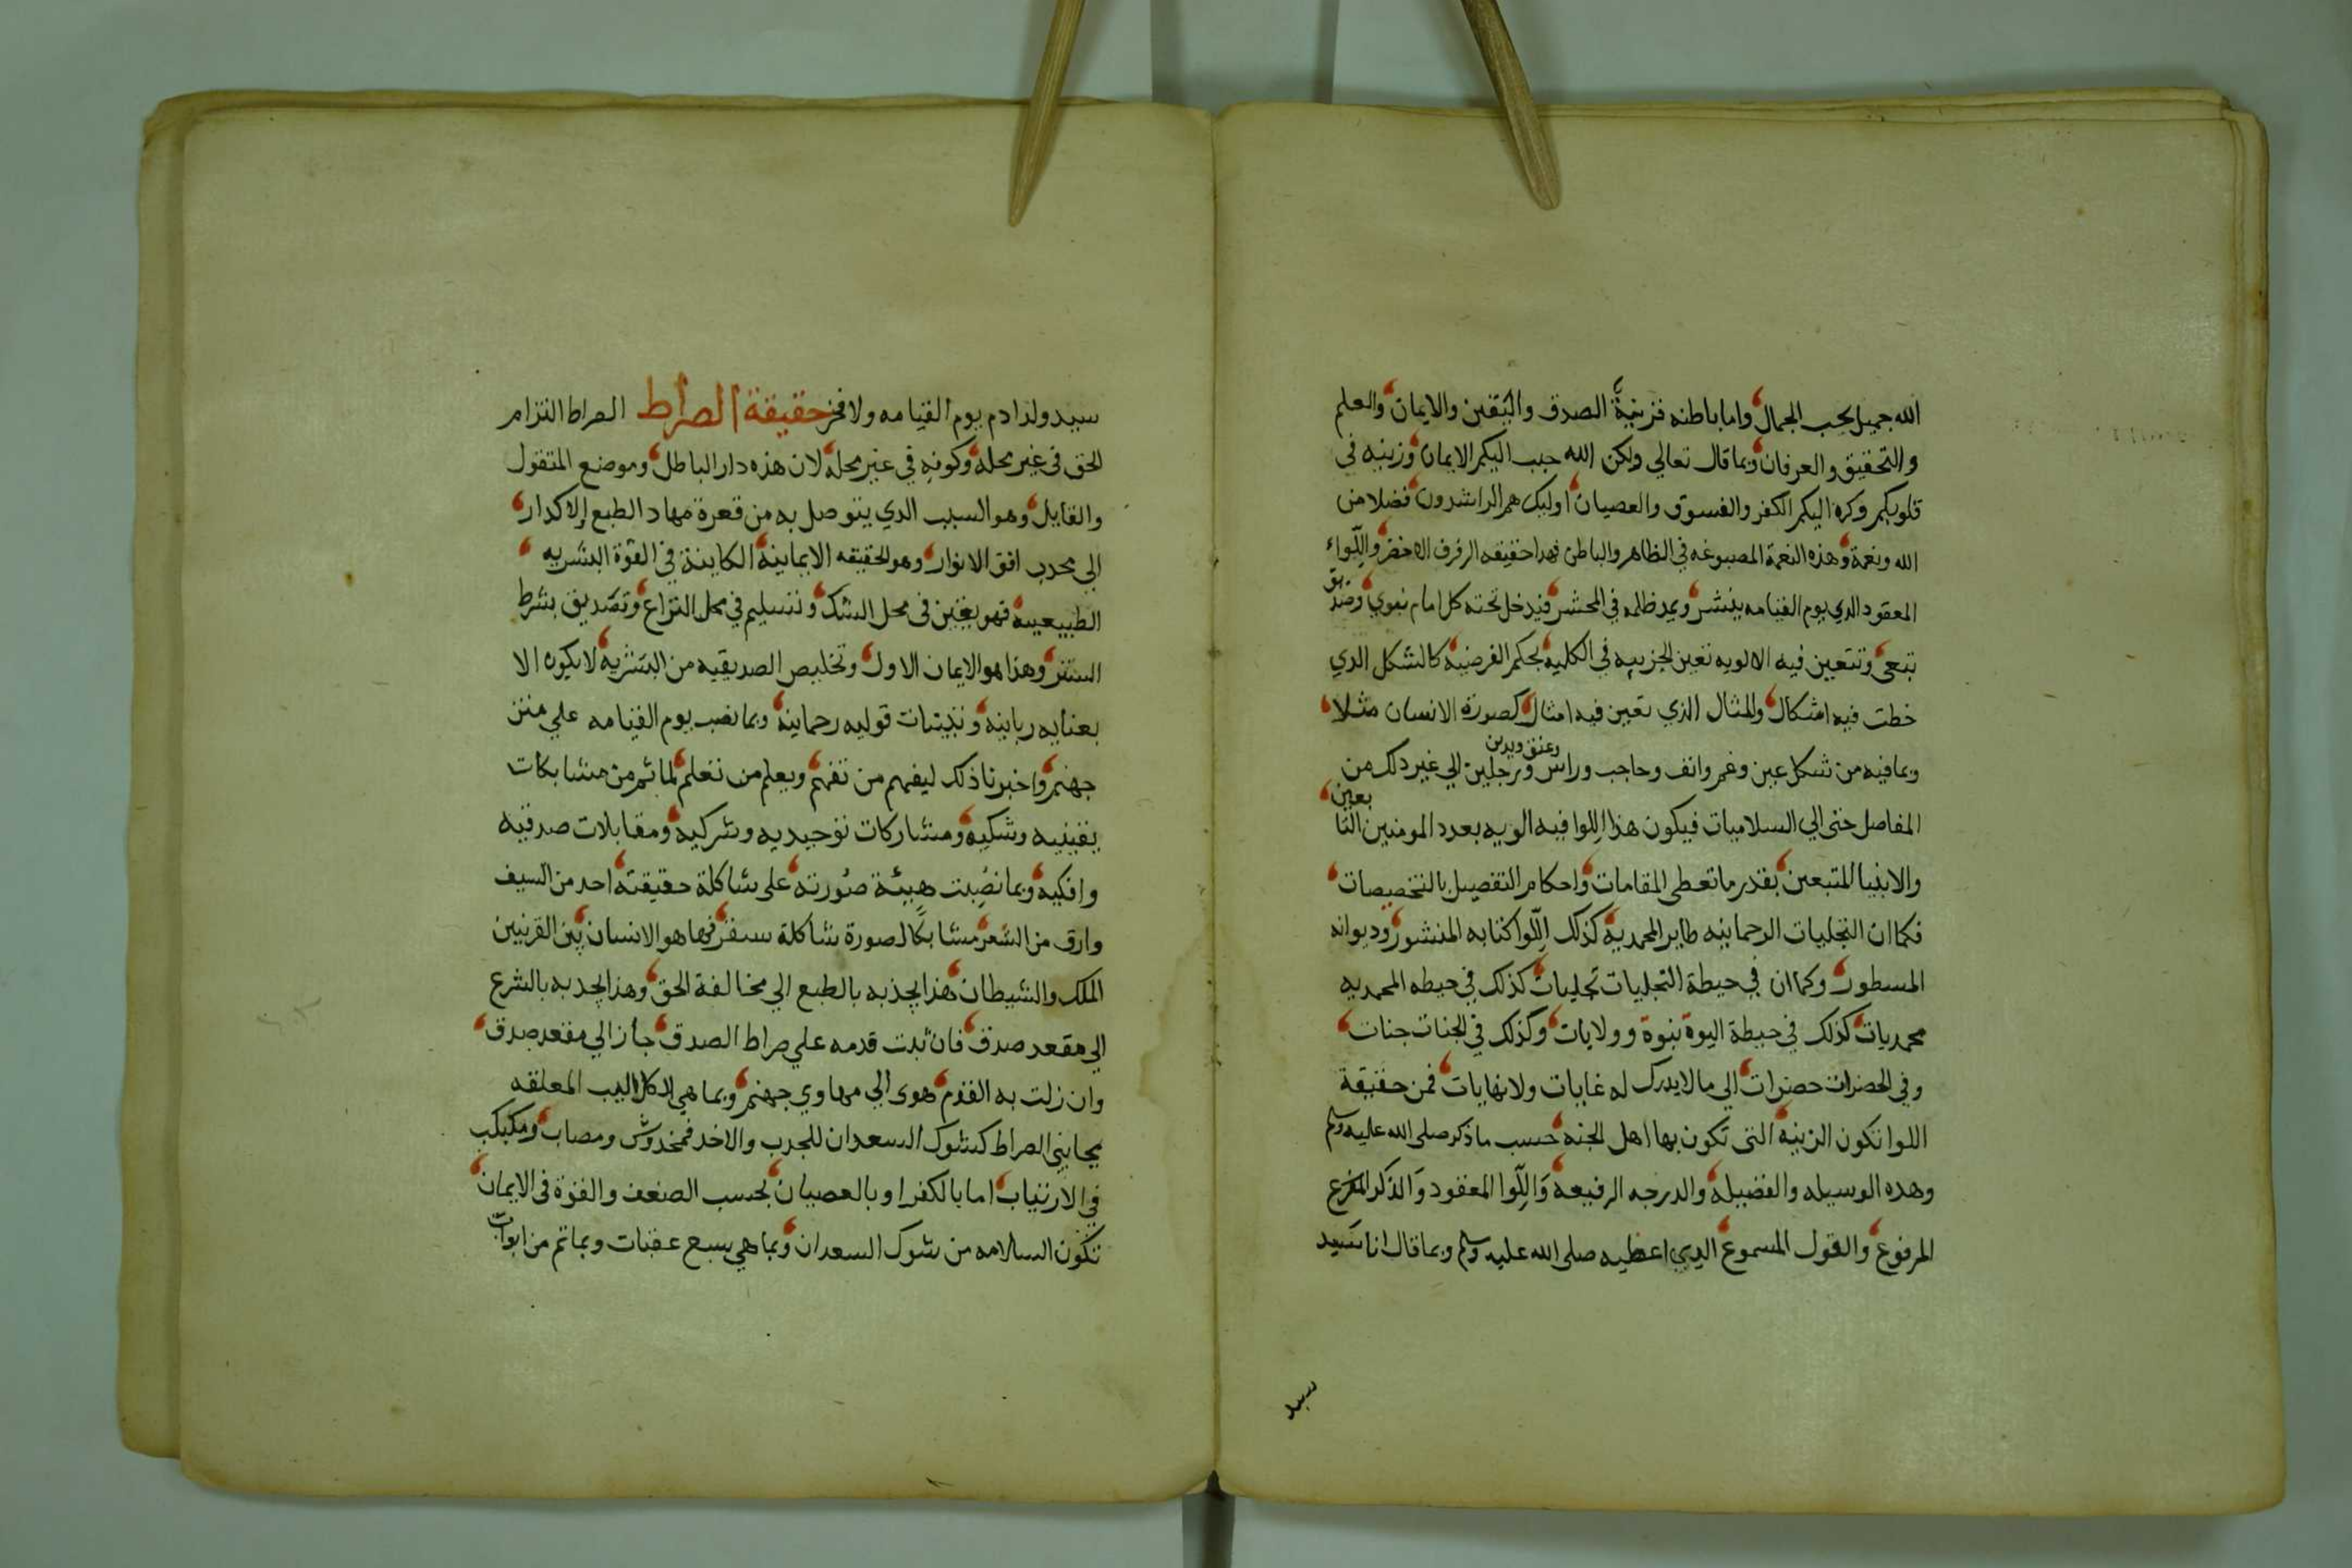 الله جميل يحب الجمال، واما باطنه فزينة الصدق واليقين والايمان، والعلم
والتحقيق والعرفان، وبما قال تعالي ولكن الله حبب اليكم الايمان، وزينه في
قلوبكم وكره اليكم الكفر والفسوق والعصيان، اوليك هم الراشدون، فضلا من
الله ونعمة، وهذه النعمة المصبوغه في الظاهر والباطن فهذا حقيقه الرفرف الاخضر، واللّواء
المعقود الدي يوم القيامه ينشر، ويمد ظله في المحشر، فيدخل تحته كل امام نبوي، وصديق
تبعي، وتتعين فيه الالويه تعين الجزييه في الكليه، بحكم الفرضيه، كالشكل الدي
خطت فيه اشكال، والمثال الذي تعين فيه امثال، كصورة الانسان مثلا،
وبما فيه من شكل عين وفم وانف وحاجب وراس وعنق ويدين ورجلين الي غير دلك من
المفاصل حتى الي السلاميات فيكون هذا اللوا فيه الويه بعدد المومنين التابعين،
والانبيا المتبعين، بقدر ما تعطي المقامات، واحكام التفصيل بالتخصيصات،
فكما ان التجليات الرحمانيه طاير المحمدية، كذلك اللّوا كتابه المنشور، وديوانه
المسطور، وكما ان في حيطة التجليات تجليات، كذلك في حيطه المحمديه
محمديات، كذلك في حيطة النبوة نبوة وولايات، وكذلك في الجنات جنات،
وفي الحضرات حضرات، الي ما لا يدرك له غايات ولا نهايات، فمن حقيقة
اللوا تكون الزينه، التي تكون بها اهل الجنه، حسب ما ذكر صلى الله عليه وسلم
وهده الوسيله والفضيله، والدرجه الرفيعه، واللّوا المعقود والذكر
المرفوع، والقول المسموع، الدي اعطيه صلى الله عليه وسلم وبما قال انا سيد
سيد
سيد ولد ادم يوم القيامه ولا فخر حقيقة الصراط الصراط التزام
الحق في غير محله، وكونه في غير محله، لان هذه دار الباطل، وموضع المتقول
والقايل، وهو السبب الدي يتوصل به من قعرة مهاد الطبع الاكدار،
الي محدب افق الانوار، وهو الحقيقه الايمانية، الكاينة في القوة البشريه،
الطبيعية، فهو يقين في محل الشك، وتسليم في محل النزاع، وتصديق بشرط
الستر، وهذا هو الايمان الاول، وتخليص الصديقيه من البشريه، لا يكون الا
بعنايه ربانيه، وتثبتات قوليه رحمانيه، وبما نصب يوم القيامه علي متن
جهنم، واخبرنا ذلك ليفهم من تفهم، ويعلم من تعلم، لما ثم من مشابكات
يقينيه وشكيه، ومشاركات توحيديه وشركيه، ومقابلات صدقيه
وافكيه، وبما نصبت هيئة صورته، على شاكلة حقيقته، احد من السيف
وارق من الشعر، مشابكا لصورة شاكلة سقر، فها هو الانسان بين القرنيين،
الملك والشيطان، هذا يجذبه بالطبع الي مخالفة الحق، وهذا يجدبه بالشرع
الي مقعد صدق، فان ثبت قدمه علي صراط الصدق، جاز الي مقعد صدق،
وان زلت به القدم، هوى الي مهاوي جهنم، وبما هي الكلاليب المعلقه
بجانبي الصراط كشوك السعدان للجدب والاخد فمخدوش ومصاب، ومكبكب
في الارتياب، اما بالكفر او بالعصيان، بحسب الضعف والقوة في الايمان،
تكون السلامه من شوك السعدان، وبما هي سبع عقبات وبما تم من ابواب